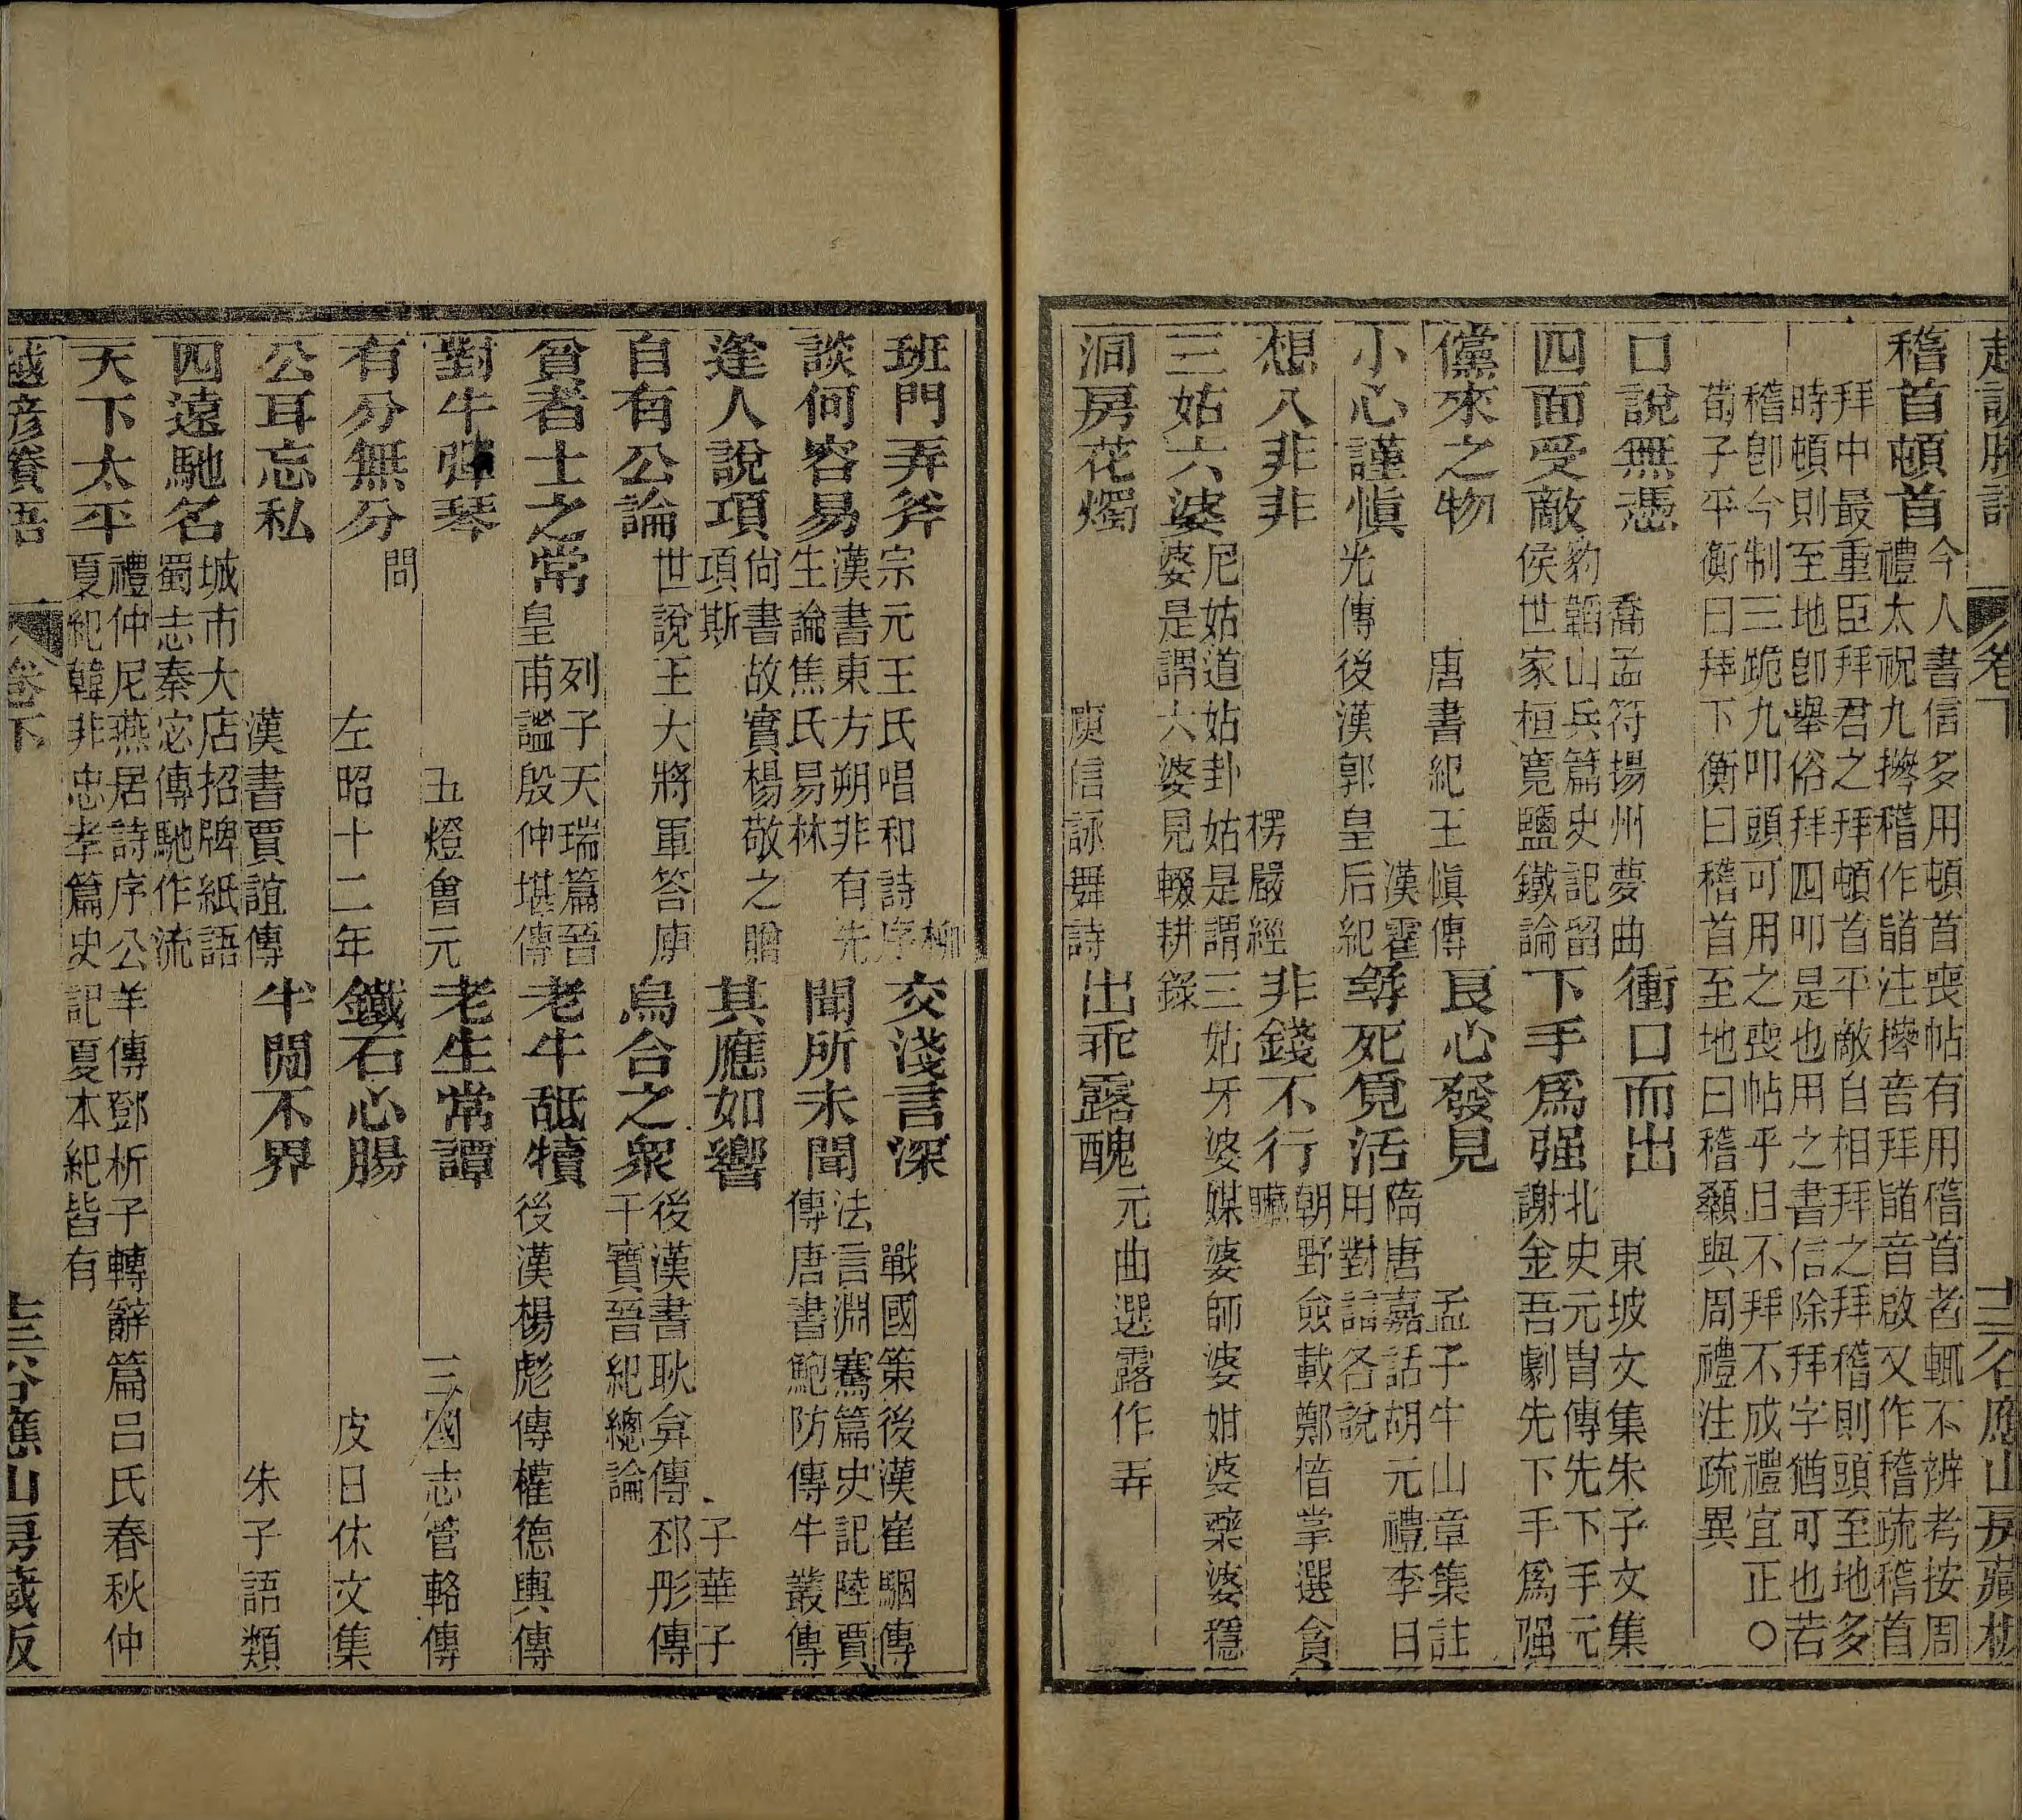 卷下
稽首頓首 今人書信多用頓首喪帖有用稽首者輒不辨考按周
禮太祝九㩦稽作䭫注㩦音拜䭫音啟又作稽疏稽首
拜中最重臣拜君之拜頓首平敵自相拜之拜稽則頭至地多
時頓則至地卽舉俗拜四叩是也用之書信除拜字猶可也若
稽卽今制三跪九叩頭可用之喪帖乎且不拜不成禮宜正〇
荀子平衡曰拜下衡曰稽首至地曰稽顙與周禮注疏異
口說無憑 喬孟符揚州夢曲
衝口而出 東坡文集朱子文集
四面受敵 豹韜山兵篇史記留
侯世家桓寬鹽鐵論
下手爲强 北史元胄傳先下手元
謝金吾劇先下手爲强
儻來之物 唐書紀王愼傳
良心發見 孟子牛山章集註
小心謹愼 漢霍
光傳後漢郭皇后紀
辤死覓活 隋唐嘉話胡元禮李日
用對語各說
想入非非 楞嚴經
非錢不行 朝野僉載鄭愔掌選貪
贓
三姑六婆 尼姑道姑卦姑是謂三姑牙婆媒婆師婆姏婆藥婆穩
婆是謂六婆見輟耕錄
洞房花燭 庾信詠舞詩
出乖露醜 元曲選露作弄
班門弄斧 柳
宗元王氏唱和詩序
交淺言深 戰國策後漢崔駰傳
談何容易 漢書東方朔非有先
生論焦氏易林
聞所未聞 法言淵騫篇史記陸賈
傳唐書鮑防傳牛叢傳
逢人說項 尙書故實楊敬之贈
項斯
其應如響 子華子
自有公論 世說王大將軍答庾
烏合之衆 後漢書耿弇傳邳彤傳
干寶晉紀總論
貧者士之常 列子天瑞篇晉
皇甫謐殷仲堪傳
老牛舐犢 後漢楊彪傳權德輿傳
對牛彈琴 五燈會元
老生常譚 三國志管輅傳
有分無分 問
左昭十二年
鐵石心腸 皮日休文集
公耳忘私 漢書賈誼傳
牛閒不界 朱子語類
四遠馳名 城市大店招牌紙語
蜀志秦宓傳馳作流
天下太平 禮仲尼燕居詩序公羊傳鄧析子轉辭篇呂氏春秋仲
夏紀韓非忠孝篇史記夏本紀皆有
越諺賸語 卷下